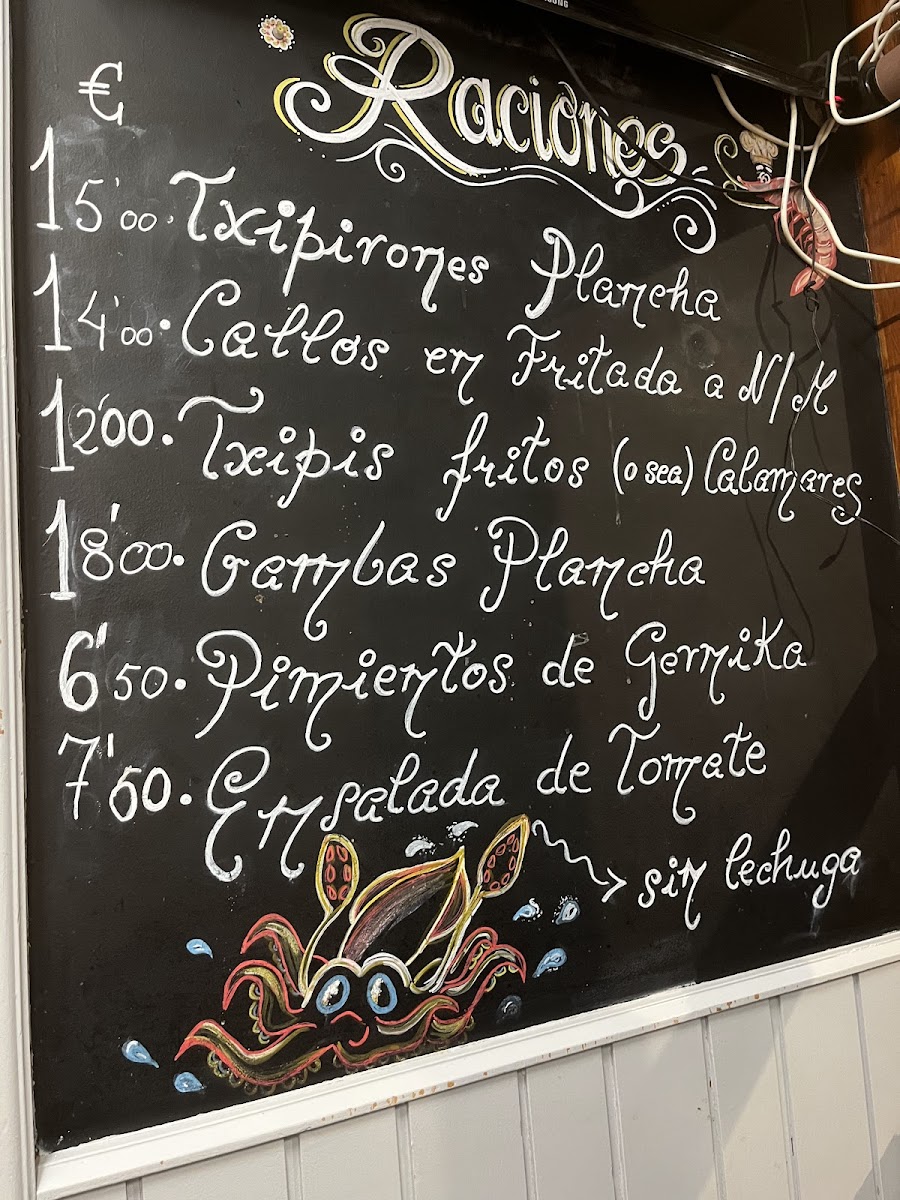 SAMSUNG
Raciones
€
15'00. Txipirones Plancha
14'00. Callos en Fritada a N/M
12'00. Txipis fritos (o sea) Calamares
18'00. Gambas Plancha
6'50. Pimientos de Gernika
7'50. Ensalada de Tomate
sin lechuga